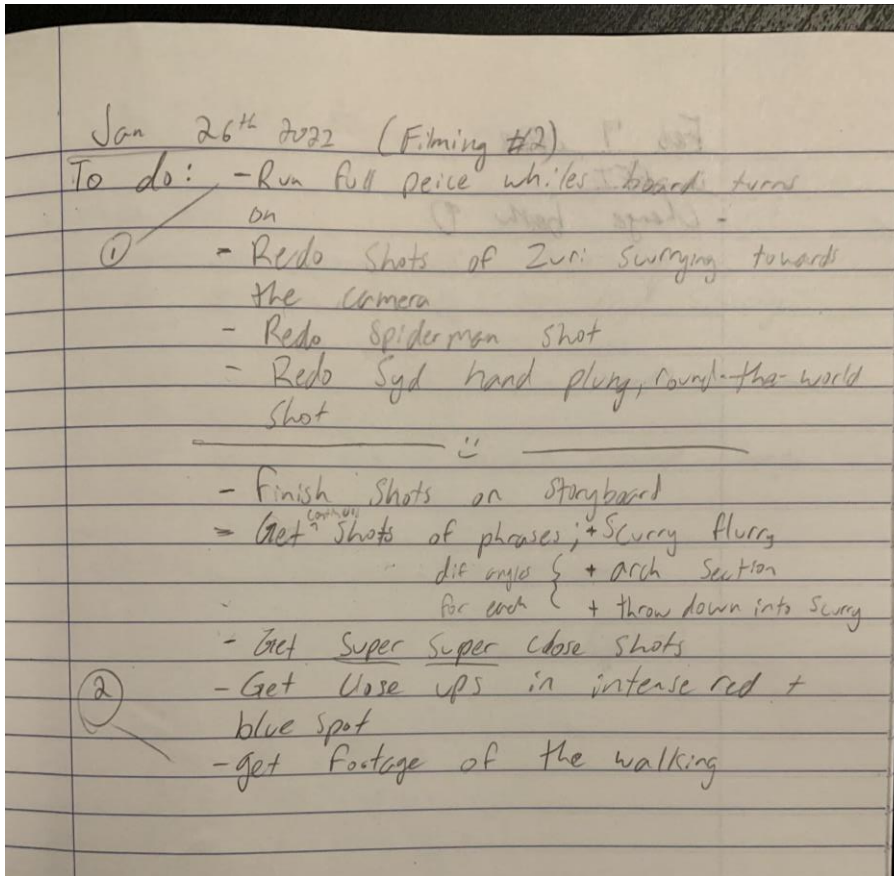 Jan 26th 2022 (Filming #2)
To do: - Run full peice whiles board turns
on
① - Redo shots of Zuri scurrying towards
the camera
- Redo Spiderman shot
- Redo Syd hand plung, round-the-world
shot
- Finish shots on storyboard
- Get shots of phrases; + Scurry flurry
dif angles { + arch section
for each { + throw down into scurry
- Get Super Super close shots
② - Get close ups in intense red +
blue spot
- get footage of the walking